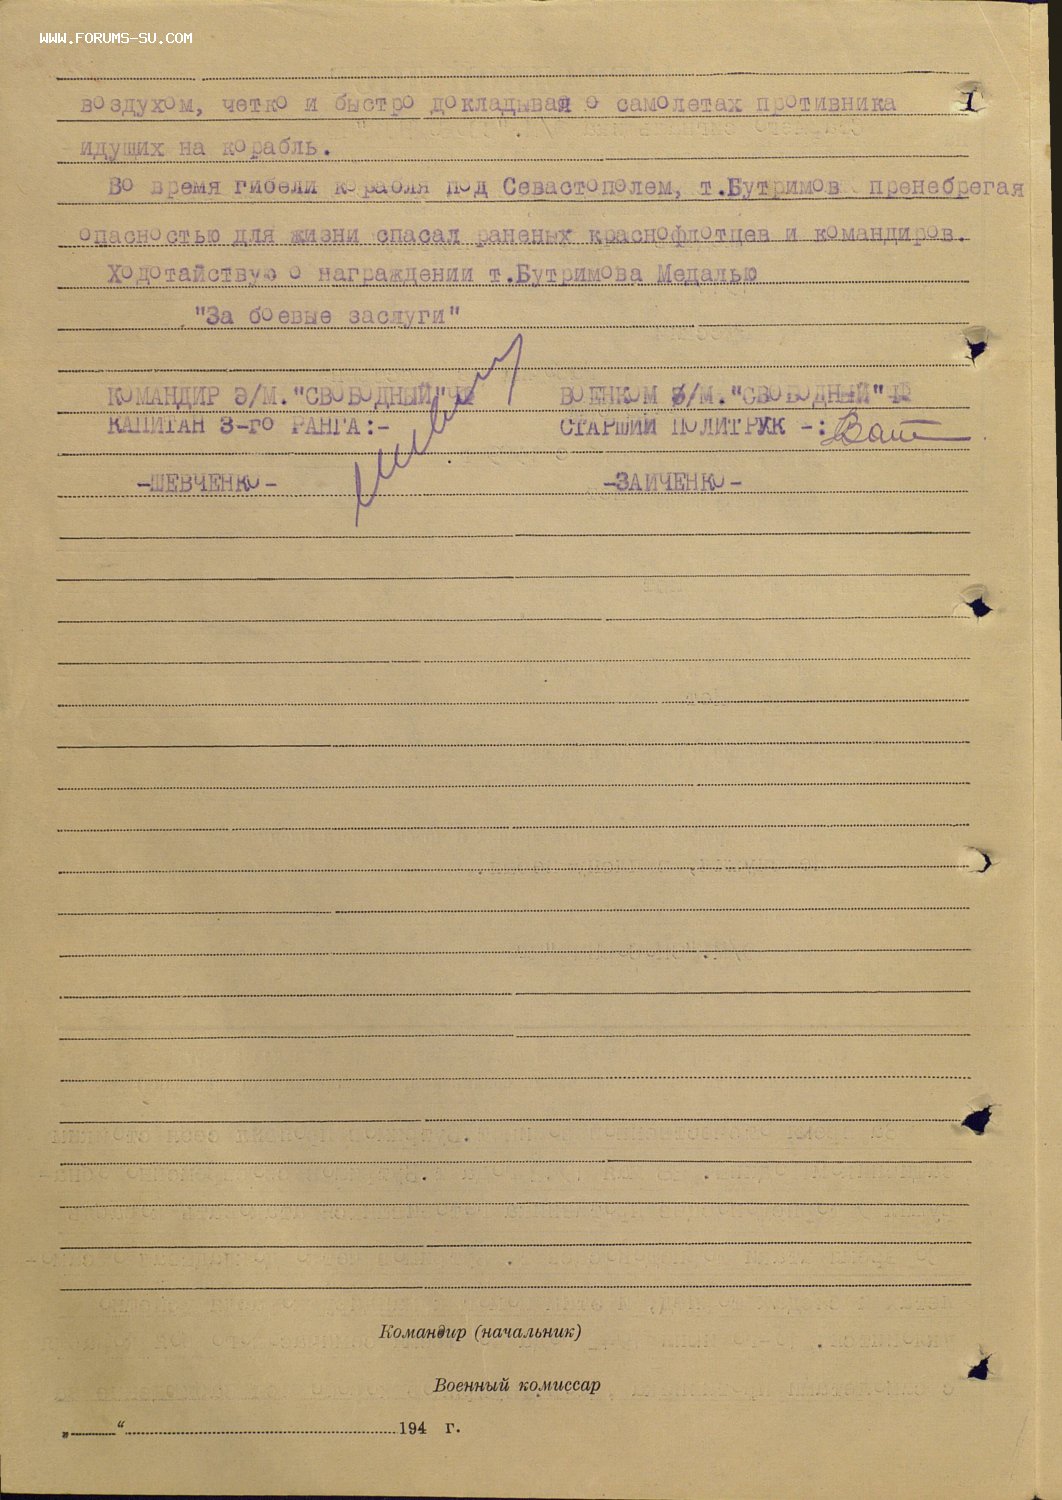 WWW.FORUMS-SU.COM
1
воздухом, четко и быстро докладывая о самолетах противника
идущих на корабль.
Во время гибели корабля под Севастополем, т.Бутримов пренебрегая
опасностью для жизни спасал раненых краснофлотцев и командиров.
Ходотайствую о награждении т.Бутримова Медалью
"За боевые заслуги"
КОМАНДИР Э/М."СВОБОДНЫЙ"ЧФ ВОЕНКОМ Э/М."СВОБОДНЫЙ"ЧФ
КАПИТАН 3-го РАНГА:- СТАРШИЙ ПОЛИТРУК -:
-ШЕВЧЕНКО- -ЗАИЧЕНКО-
Командир (начальник)
Военный комиссар
„ “ 194 г.